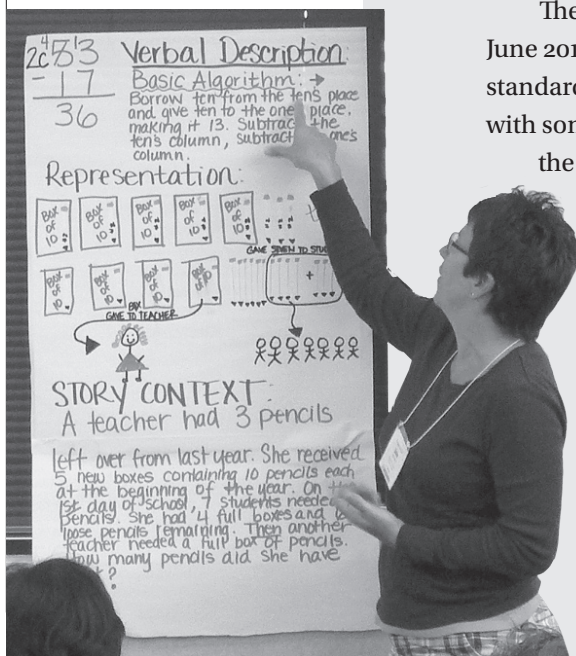 The
June 201
standard
with son
the
53
- 17
36
Verbal Description:
Basic Algorithm: →
Borrow ten from the ten's place
and give ten to the one's place,
making it 13. Subtract the
ten's column, subtract one's
column.
Representation:
Box of 10
Box of 10
Box of 10
Box of 10
Box of 10
GAVE SEVEN TO
Box of 10
Box of 10
Box of 10
Box of 10
+
BOX
GAVE TO TEACHER
STORY CONTEXT:
A teacher had 3 pencils
left over from last year. She received
5 new boxes containing 10 pencils each
at the beginning of the year. On
1st day of school, 7 students needed
pencils. She had 4 full boxes and
loose pencils remaining. Then another
teacher needed a full box of pencils.
How many pencils did she have
?